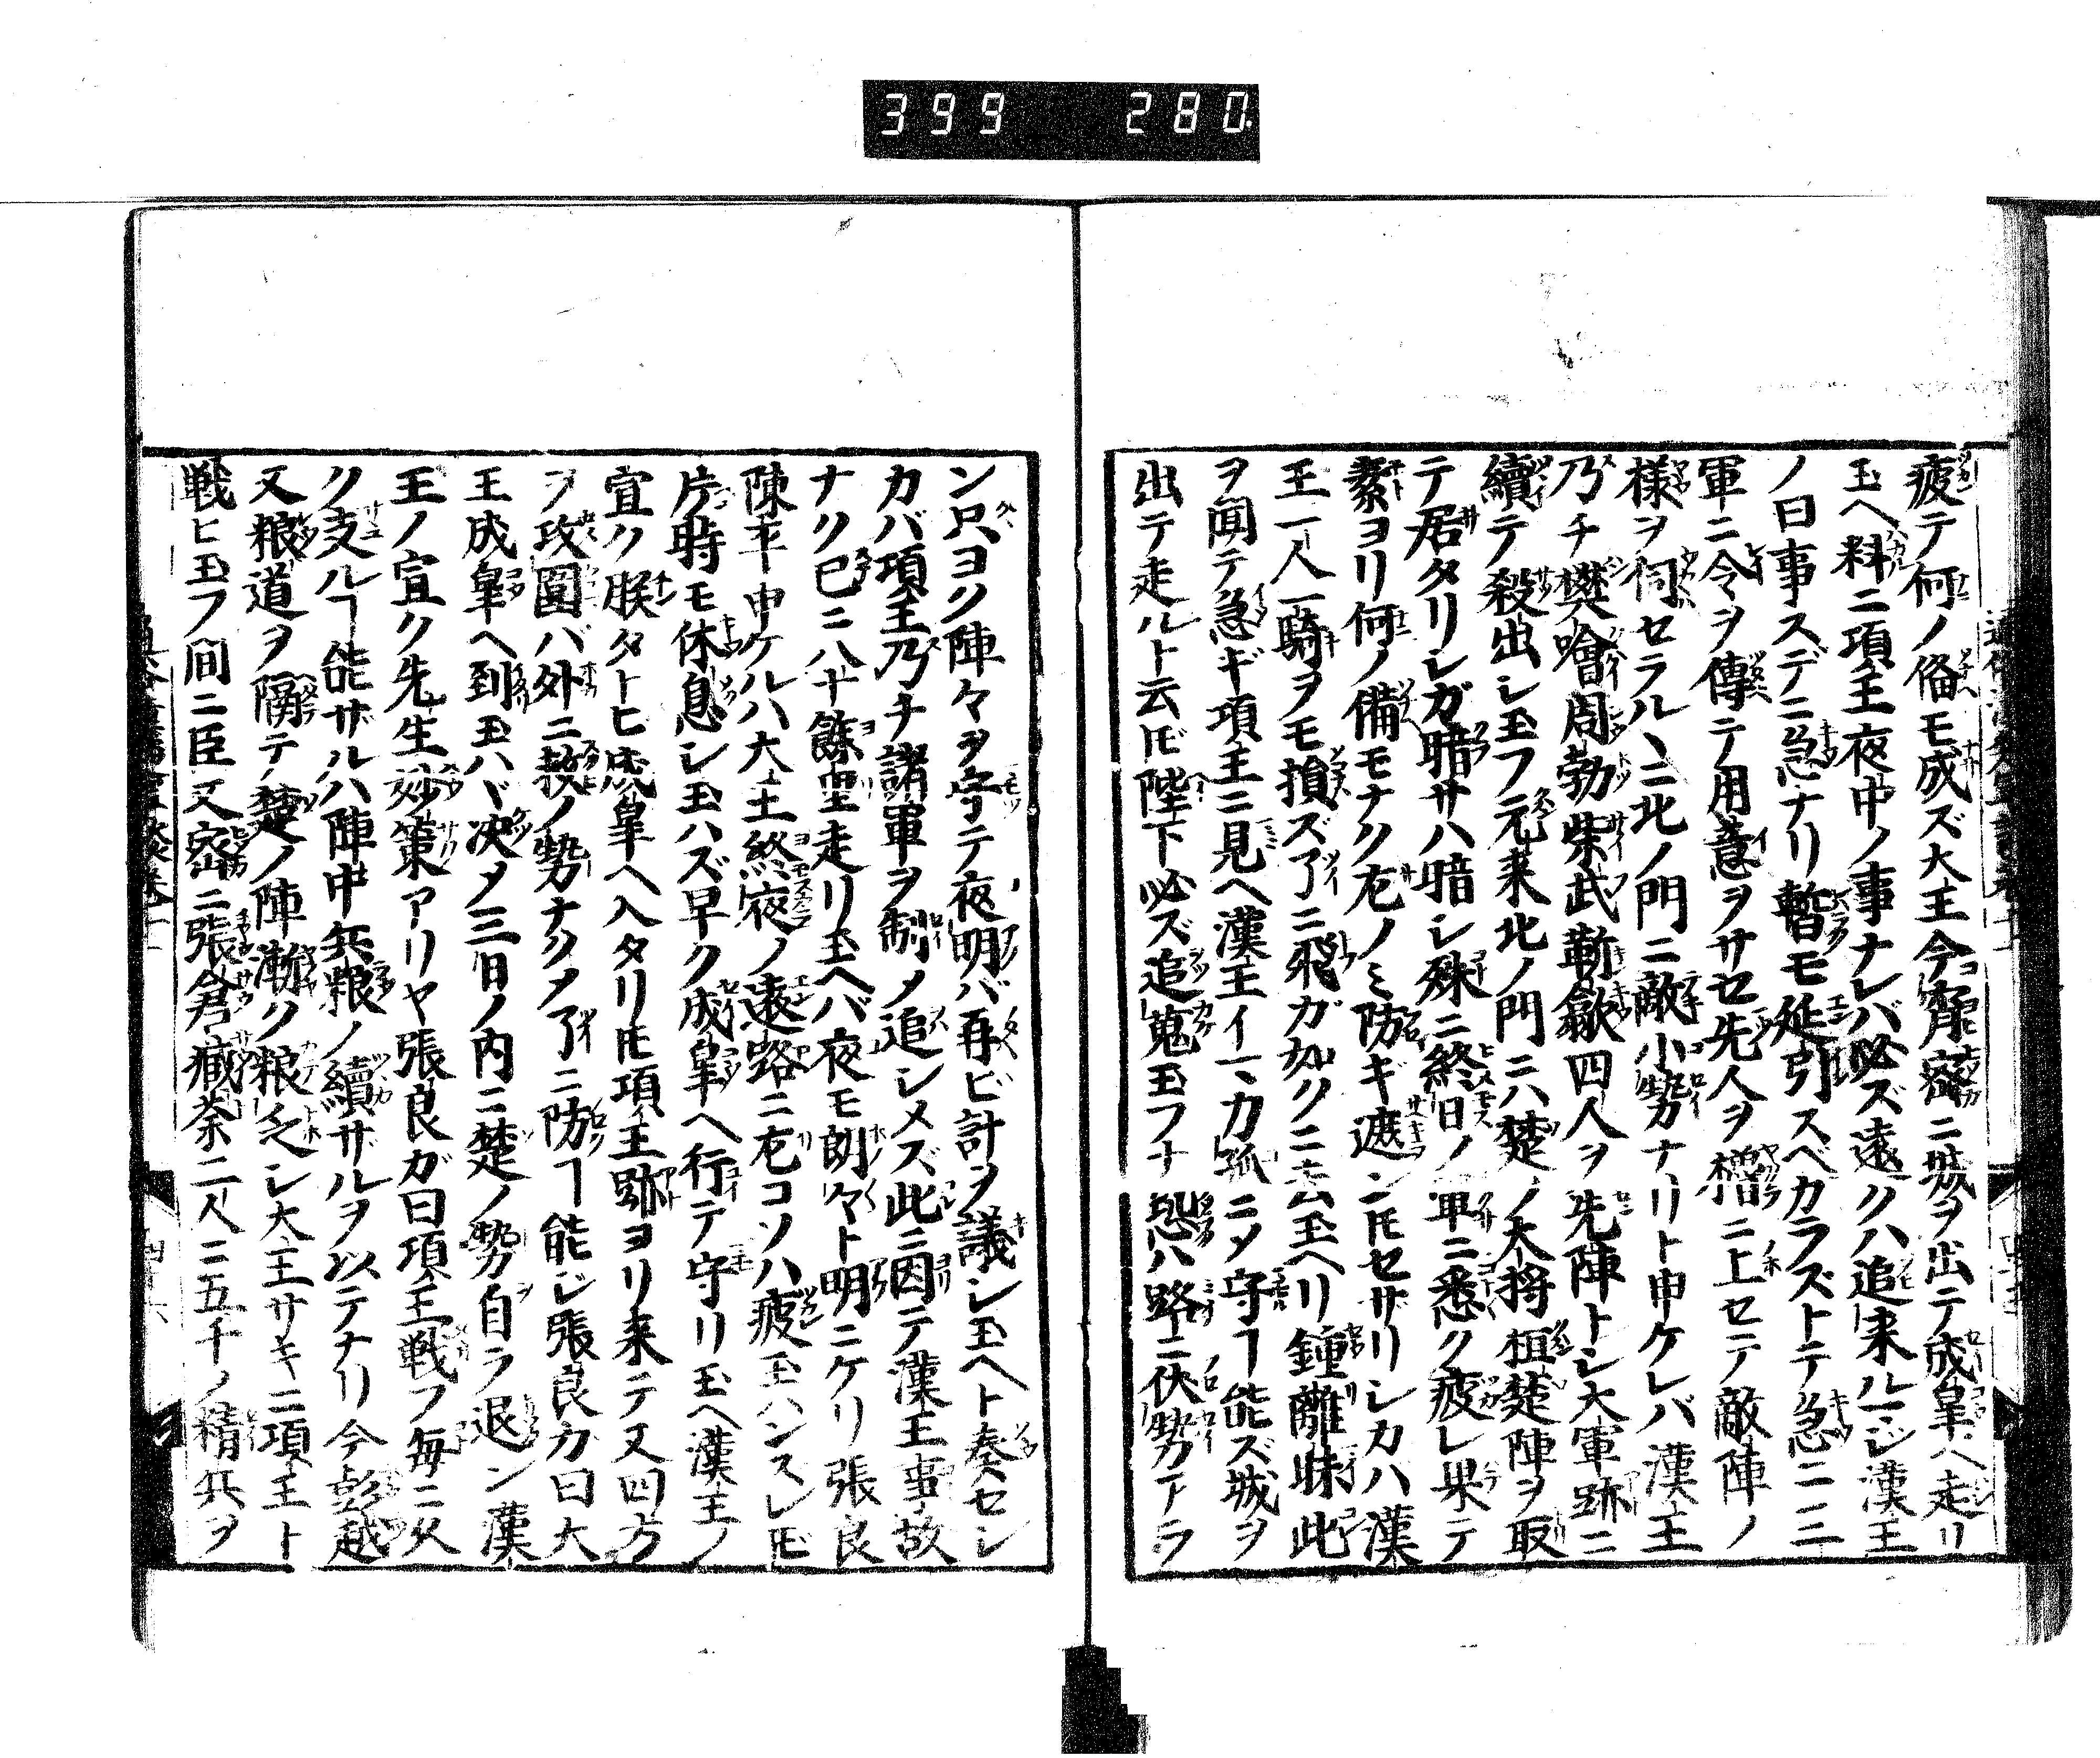 399 280
疲テ何ノ俻モ成ズ大王今宵密ニ城ヲ出テ成皐ヘ走リ
玉ヘ料ニ項王夜中ノ事ナレバ必ズ遠クハ追来ルヿジ漢王
ノ曰事スデニ急ナリ暫モ延引スベカラズトテ急ニ三
軍ニ令ヲ傳テ用意ヲサセ先人ヲ櫓ニ上セテ敵陣ノ
様ヲ伺セラルヽニ北ノ門ニ敵小勢ナリト申ケレバ漢王
乃チ樊噲周勃柴武靳歙四人ヲ先陣トシ大軍跡ニ
續テ殺出シ玉フ元来北ノ門ニハ楚ノ大将桓楚陣ヲ取
テ居タリシガ暗サハ暗シ殊ニ終日ノ軍ニ悉ク疲レ果テ
素ヨリ何ノ備モナク左ノミ防ギ遮ン𪜈セザリシカハ漢
王一人一騎ヲモ損ズ了ニ飛ガ如クニ去玉ヘリ鍾離昧此
ヲ聞テ急ギ項王ニ見ヘ漢王イマ力孤ニメ守ヿ能ズ城ヲ
出テ走ルト云𪜈陛下必ズ追蒐玉フナ恐ハ路ニ伏勢アラ
ン只ヨク陣々ヲ守テ夜明バ再ビ計ヲ議シ玉ヘト奏セシ
カバ項王乃チ諸軍ヲ制メ追シメズ此ニ因テ漢王事故
ナク已ニ八十餘里走リ玉ヘバ夜モ朗々ト明ニケリ張良
陳平申ケルハ大王終夜ノ遠路ニ左コソハ疲玉ハンスレ𪜈
片時モ休息シ玉ハズ早ク成皐ヘ行テ守リ玉ヘ漢王ノ
宣ク朕タトヒ成皐ヘ入タリ𪜈項王跡ヨリ来テ又四方
ヲ攻圍バ外ニ救ノ勢ナクメ了ニ防ヿ能ジ張良カ曰大
王成皐ヘ到玉ハヾ决メ三日ノ内ニ楚ノ勢自ラ退ン漢
王ノ宣ク先生妙策アリヤ張良ガ曰項王戦フ毎ニ久
ク支ルヿ能ザルハ陣中兵粮ノ續ザルヲ以テナリ今彭越
又粮道ヲ隔テ楚ノ陣漸ク粮乏シ大王サキニ項王ト
戦ヒ玉フ間ニ臣又密ニ張倉臧荼二人ニ五千ノ精兵ヲ